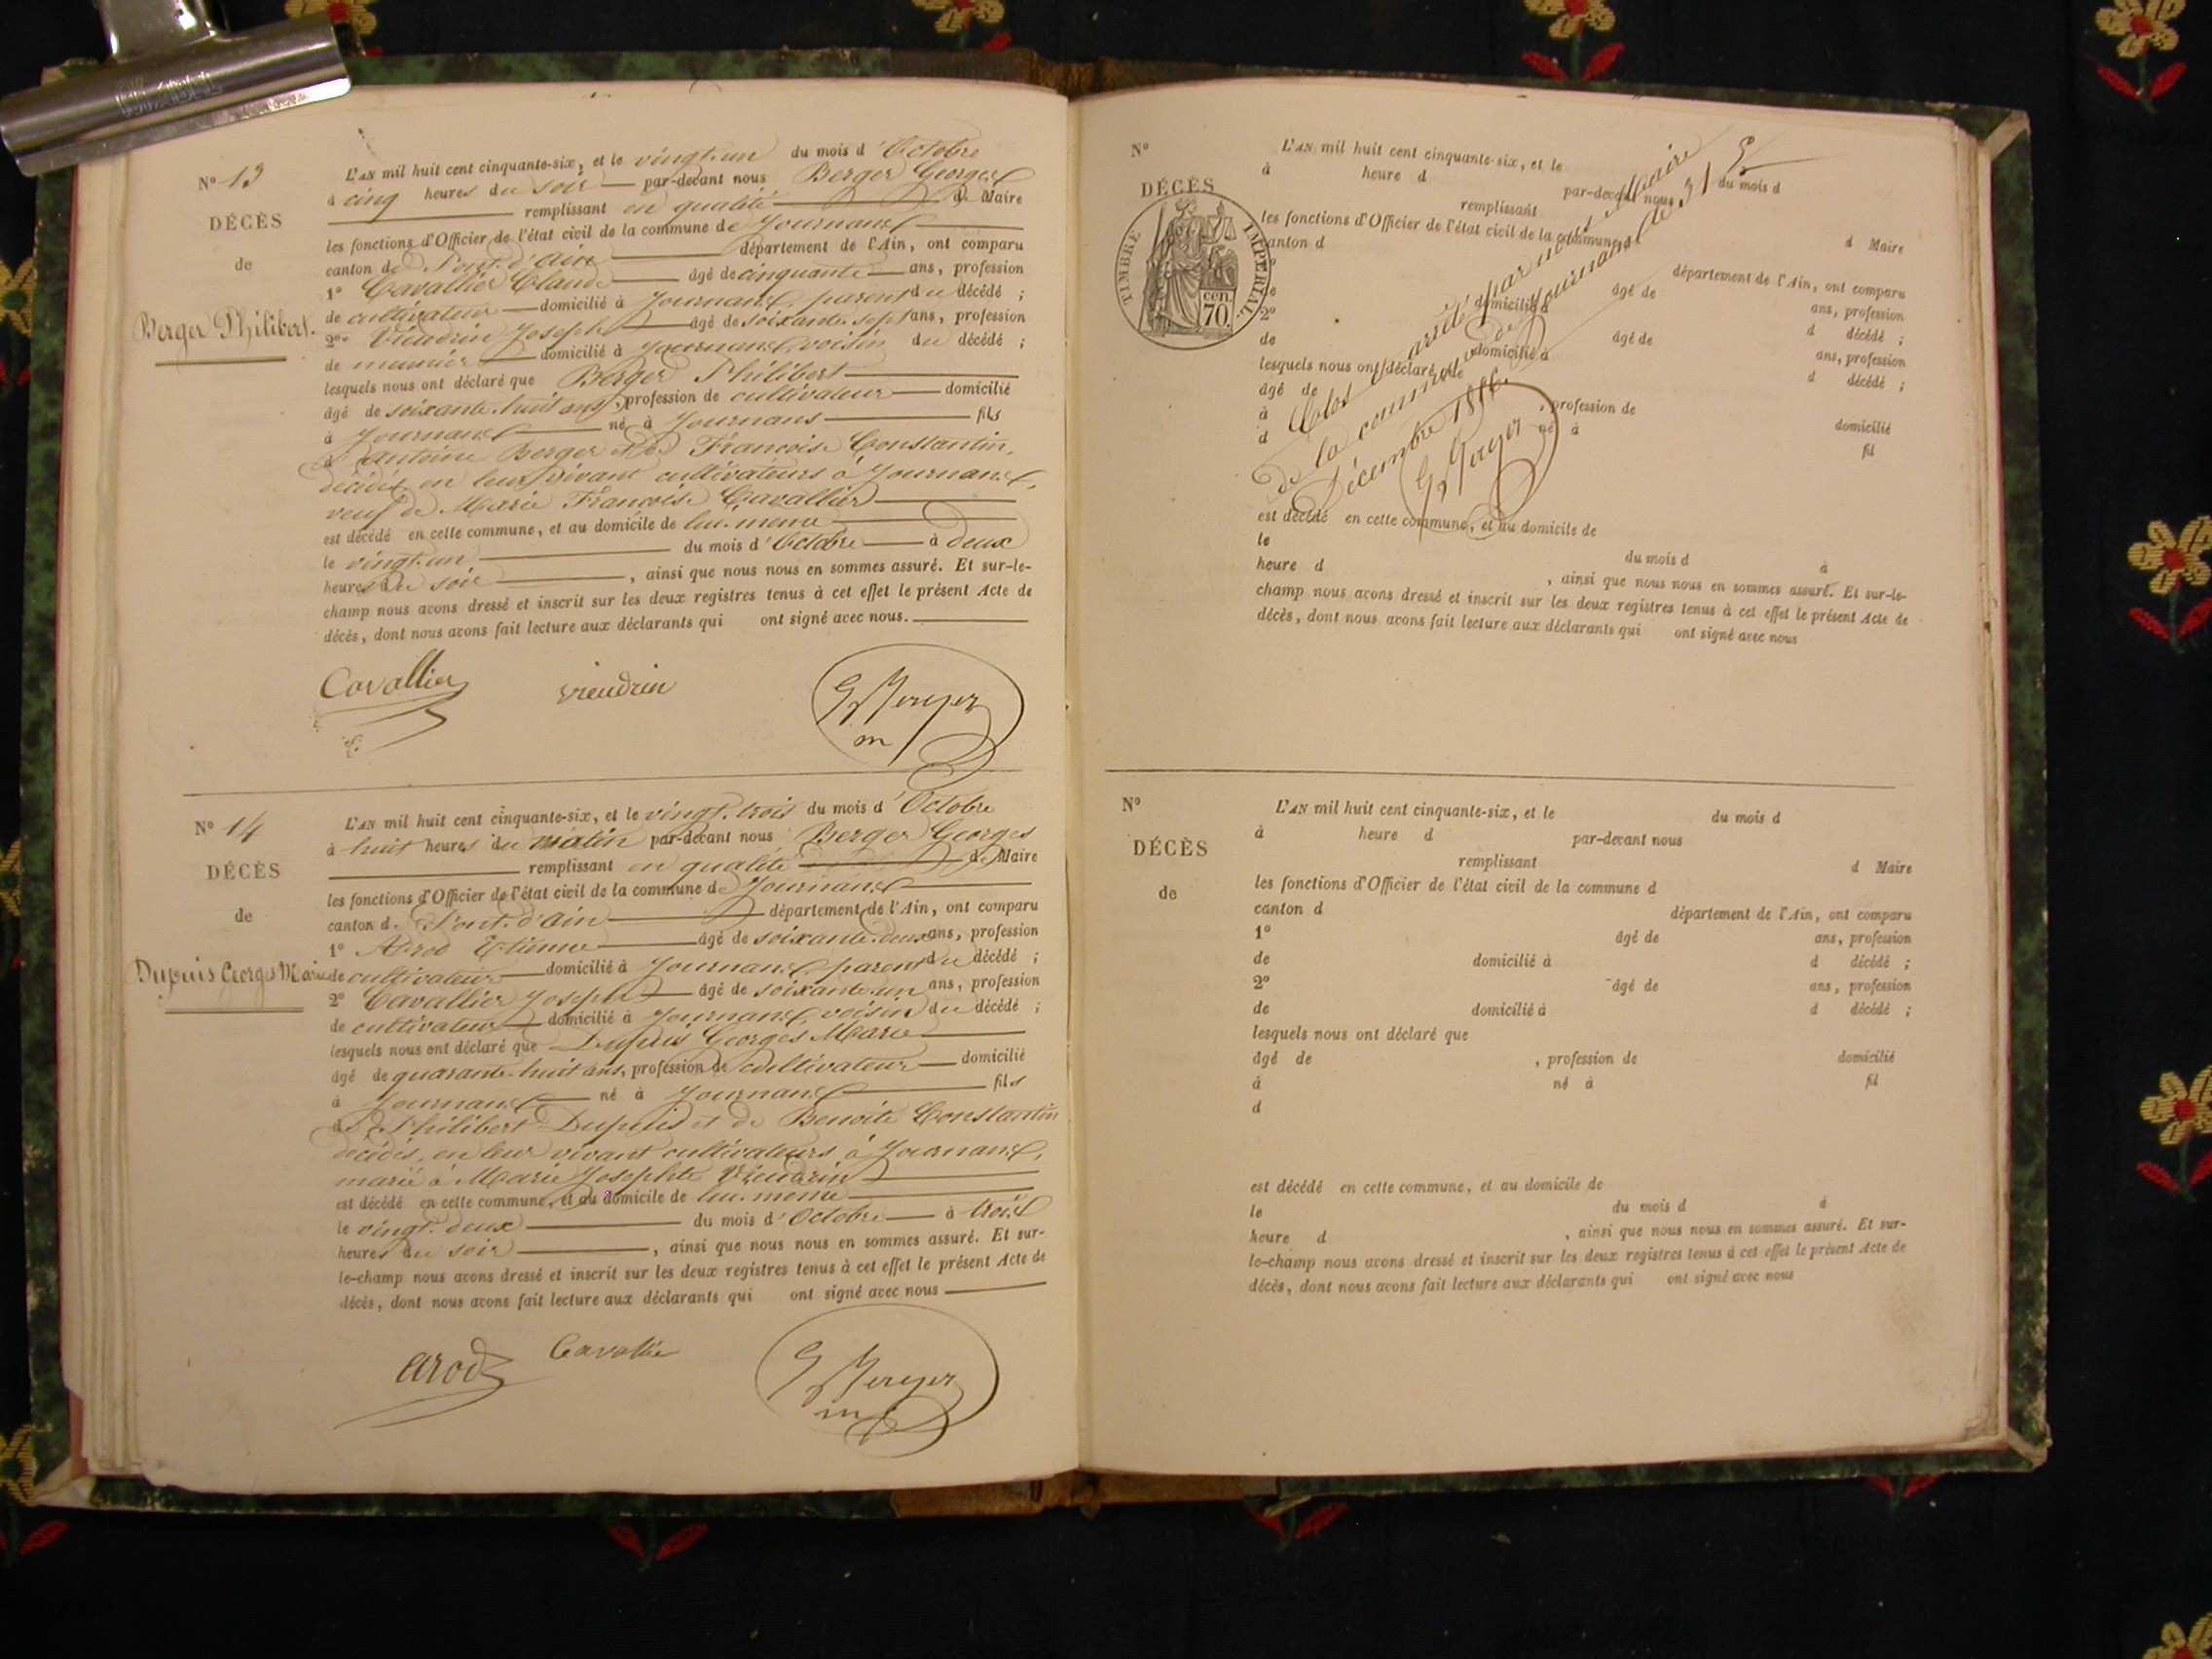 N° 13
DÉCÈS
de
Berger Philibert.
L'AN mil huit cent cinquante-six, et le vingt-un du mois d'Octobre
à cinq heures du soir par-devant nous Berger Georges
remplissant en qualité de Maire
les fonctions d'Officier de l'état civil de la commune de Journans
canton de Pont-d'ain département de l'Ain, ont comparu
1° Cavallier Claude âgé de cinquante ans, profession
de cultivateur domicilié à Journans, parent du décédé ;
2° Vieudrin Joseph âgé de soixante-sept ans, profession
de meunier domicilié à Journans, voisin du décédé ;
lesquels nous ont déclaré que Berger Philibert
âgé de soixante-huit ans, profession de cultivateur domicilié
à Journans né à Journans fils
d'antoine Berger et de Françoise Constantin,
décédés en leur vivant cultivateurs à Journans,
veuf de Marie Françoise Cavallier
est décédé en cette commune, et au domicile de lui-même
le vingt-un du mois d'Octobre à deux
heures du soir, ainsi que nous nous en sommes assuré. Et sur-le-
champ nous avons dressé et inscrit sur les deux registres tenus à cet effet le présent Acte de
décès, dont nous avons fait lecture aux déclarants qui ont signé avec nous.
Cavallier vieudrin G Berger
m
N° 14
DÉCÈS
de
Dupuis Georges Marie
L'AN mil huit cent cinquante-six, et le vingt-trois du mois d'Octobre
à huit heures du matin par-devant nous Berger Georges
remplissant en qualité de Maire
les fonctions d'Officier de l'état civil de la commune de Journans
canton de Pont-d'ain département de l'Ain, ont comparu
1° Arod Etienne âgé de soixante-deux ans, profession
de cultivateur domicilié à Journans, parent du décédé ;
2° Cavallier Joseph âgé de soixante-un ans, profession
de cultivateur domicilié à Journans, voisin du décédé ;
lesquels nous ont déclaré que Dupuis Georges Marie
âgé de quarante-huit ans, profession de cultivateur domicilié
à Journans né à Journans fils
de Philibert Dupuis et de Benoite Constantin
décédés, en leur vivant cultivateurs à Journans,
marié à Marie Josephte Vieudrin
est décédé en cette commune, et au domicile de lui-même
le vingt-deux du mois d'Octobre à trois
heures du soir, ainsi que nous nous en sommes assuré. Et sur-
le-champ nous avons dressé et inscrit sur les deux registres tenus à cet effet le présent Acte de
décès, dont nous avons fait lecture aux déclarants qui ont signé avec nous
arod Cavallier G Berger
m
N°
DÉCÈS
TIMBRE IMPÉRIAL.
70 cen.
L'AN mil huit cent cinquante-six, et le du mois d
à heure d par-devant nous
remplissant d Maire
les fonctions d'Officier de l'état civil de la commune d
canton d département de l'Ain, ont comparu
1° âgé de ans, profession
de domicilié à d décédé ;
2° âgé de ans, profession
de domicilié à d décédé ;
lesquels nous ont déclaré que
âgé de , profession de domicilié
à né à fil
d
Clos arrêté par nous Maire
de la commune de Journans le 31
Décembre 1856.
G Berger
est décédé en cette commune, et au domicile de
le du mois d à
heure d , ainsi que nous nous en sommes assuré. Et sur-le-
champ nous avons dressé et inscrit sur les deux registres tenus à cet effet le présent Acte de
décès, dont nous avons fait lecture aux déclarants qui ont signé avec nous
N°
DÉCÈS
de
L'AN mil huit cent cinquante-six, et le du mois d
à heure d par-devant nous
remplissant d Maire
les fonctions d'Officier de l'état civil de la commune d
canton d département de l'Ain, ont comparu
1° âgé de ans, profession
de domicilié à d décédé ;
2° âgé de ans, profession
de domicilié à d décédé ;
lesquels nous ont déclaré que
âgé de , profession de domicilié
à né à fil
d
est décédé en cette commune, et au domicile de
le du mois d à
heure d , ainsi que nous nous en sommes assuré. Et sur-
le-champ nous avons dressé et inscrit sur les deux registres tenus à cet effet le présent Acte de
décès, dont nous avons fait lecture aux déclarants qui ont signé avec nous